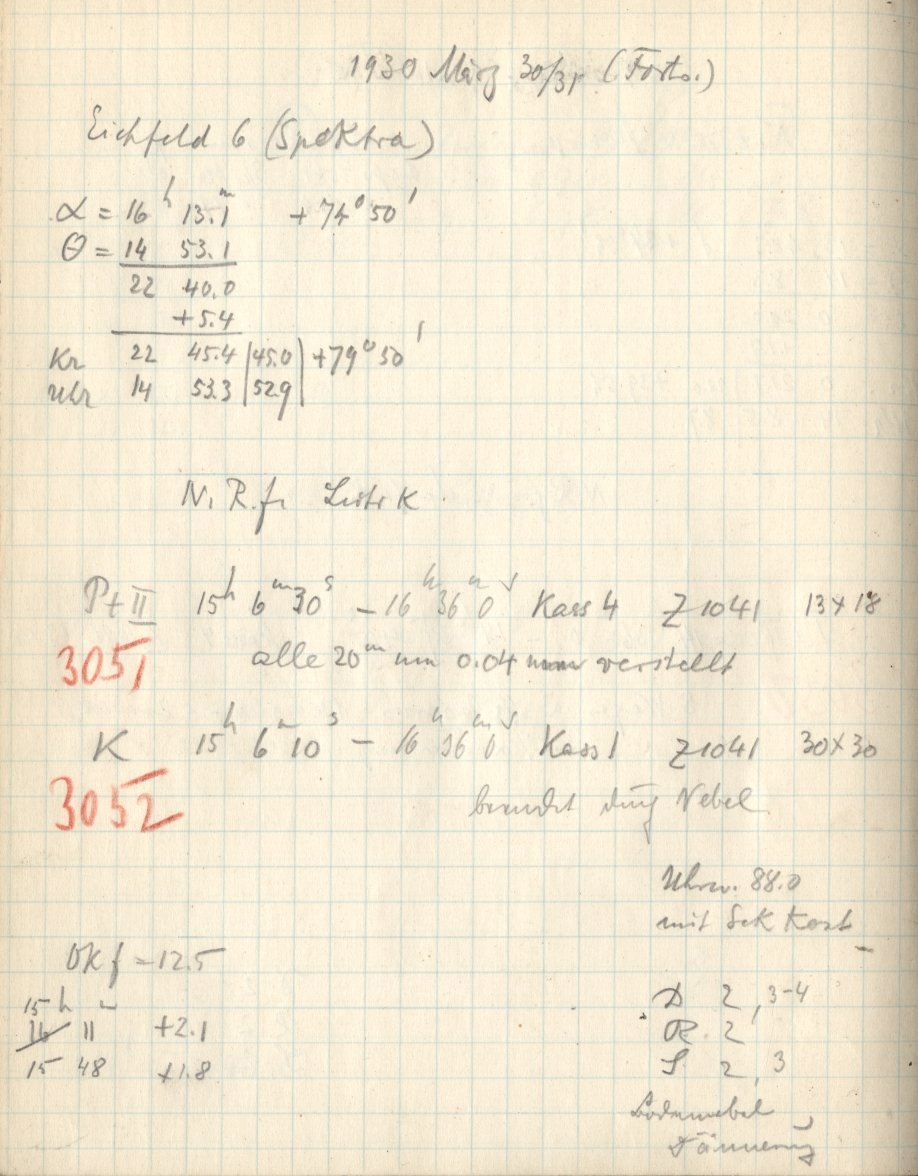 1930 März 30/31 (Forts.)
Eichfeld 6 (Spektra)
α = 16ʰ 13.1ᵐ +74° 50'
Θ = 14 53.1
22 40.0
+5.4
Kr 22 45.4 |45.0| +79° 50'
Uhr 14 53.3 |52.9|
N. R. f.
Pt II 15ʰ 6ᵐ 30ˢ – 16ʰ 36ᵐ 0ˢ Kass 4 Z 1041 13×18
3051 alle 20ᵐ um 0.04 mm verstellt
K 15ʰ 6ᵐ 10ˢ – 16ʰ 36ᵐ 0ˢ Kass 1 Z 1041 30×30
3052 beendet durch Nebel
Uhrw. 88.0
mit Sek Kont
OK f = 12.5
15ʰ ᵐ
16 11 +2.1
15 48 +1.8
D 2, 3-4
R. 2
S 2, 3
Bodennebel
Dämmerung